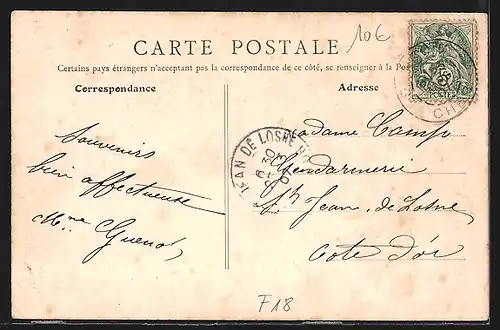 10€
CARTE POSTALE
Certains pays étrangers n'acceptant pas la correspondance de ce côté, se renseigner à la Poste
Correspondance
Adresse
Souvenirs
bien affectueuse
Mme Guenot
JEAN DE LOSNE
Madame Camp
Gendarmerie
St Jean de Losne
Cote d'Or
F18